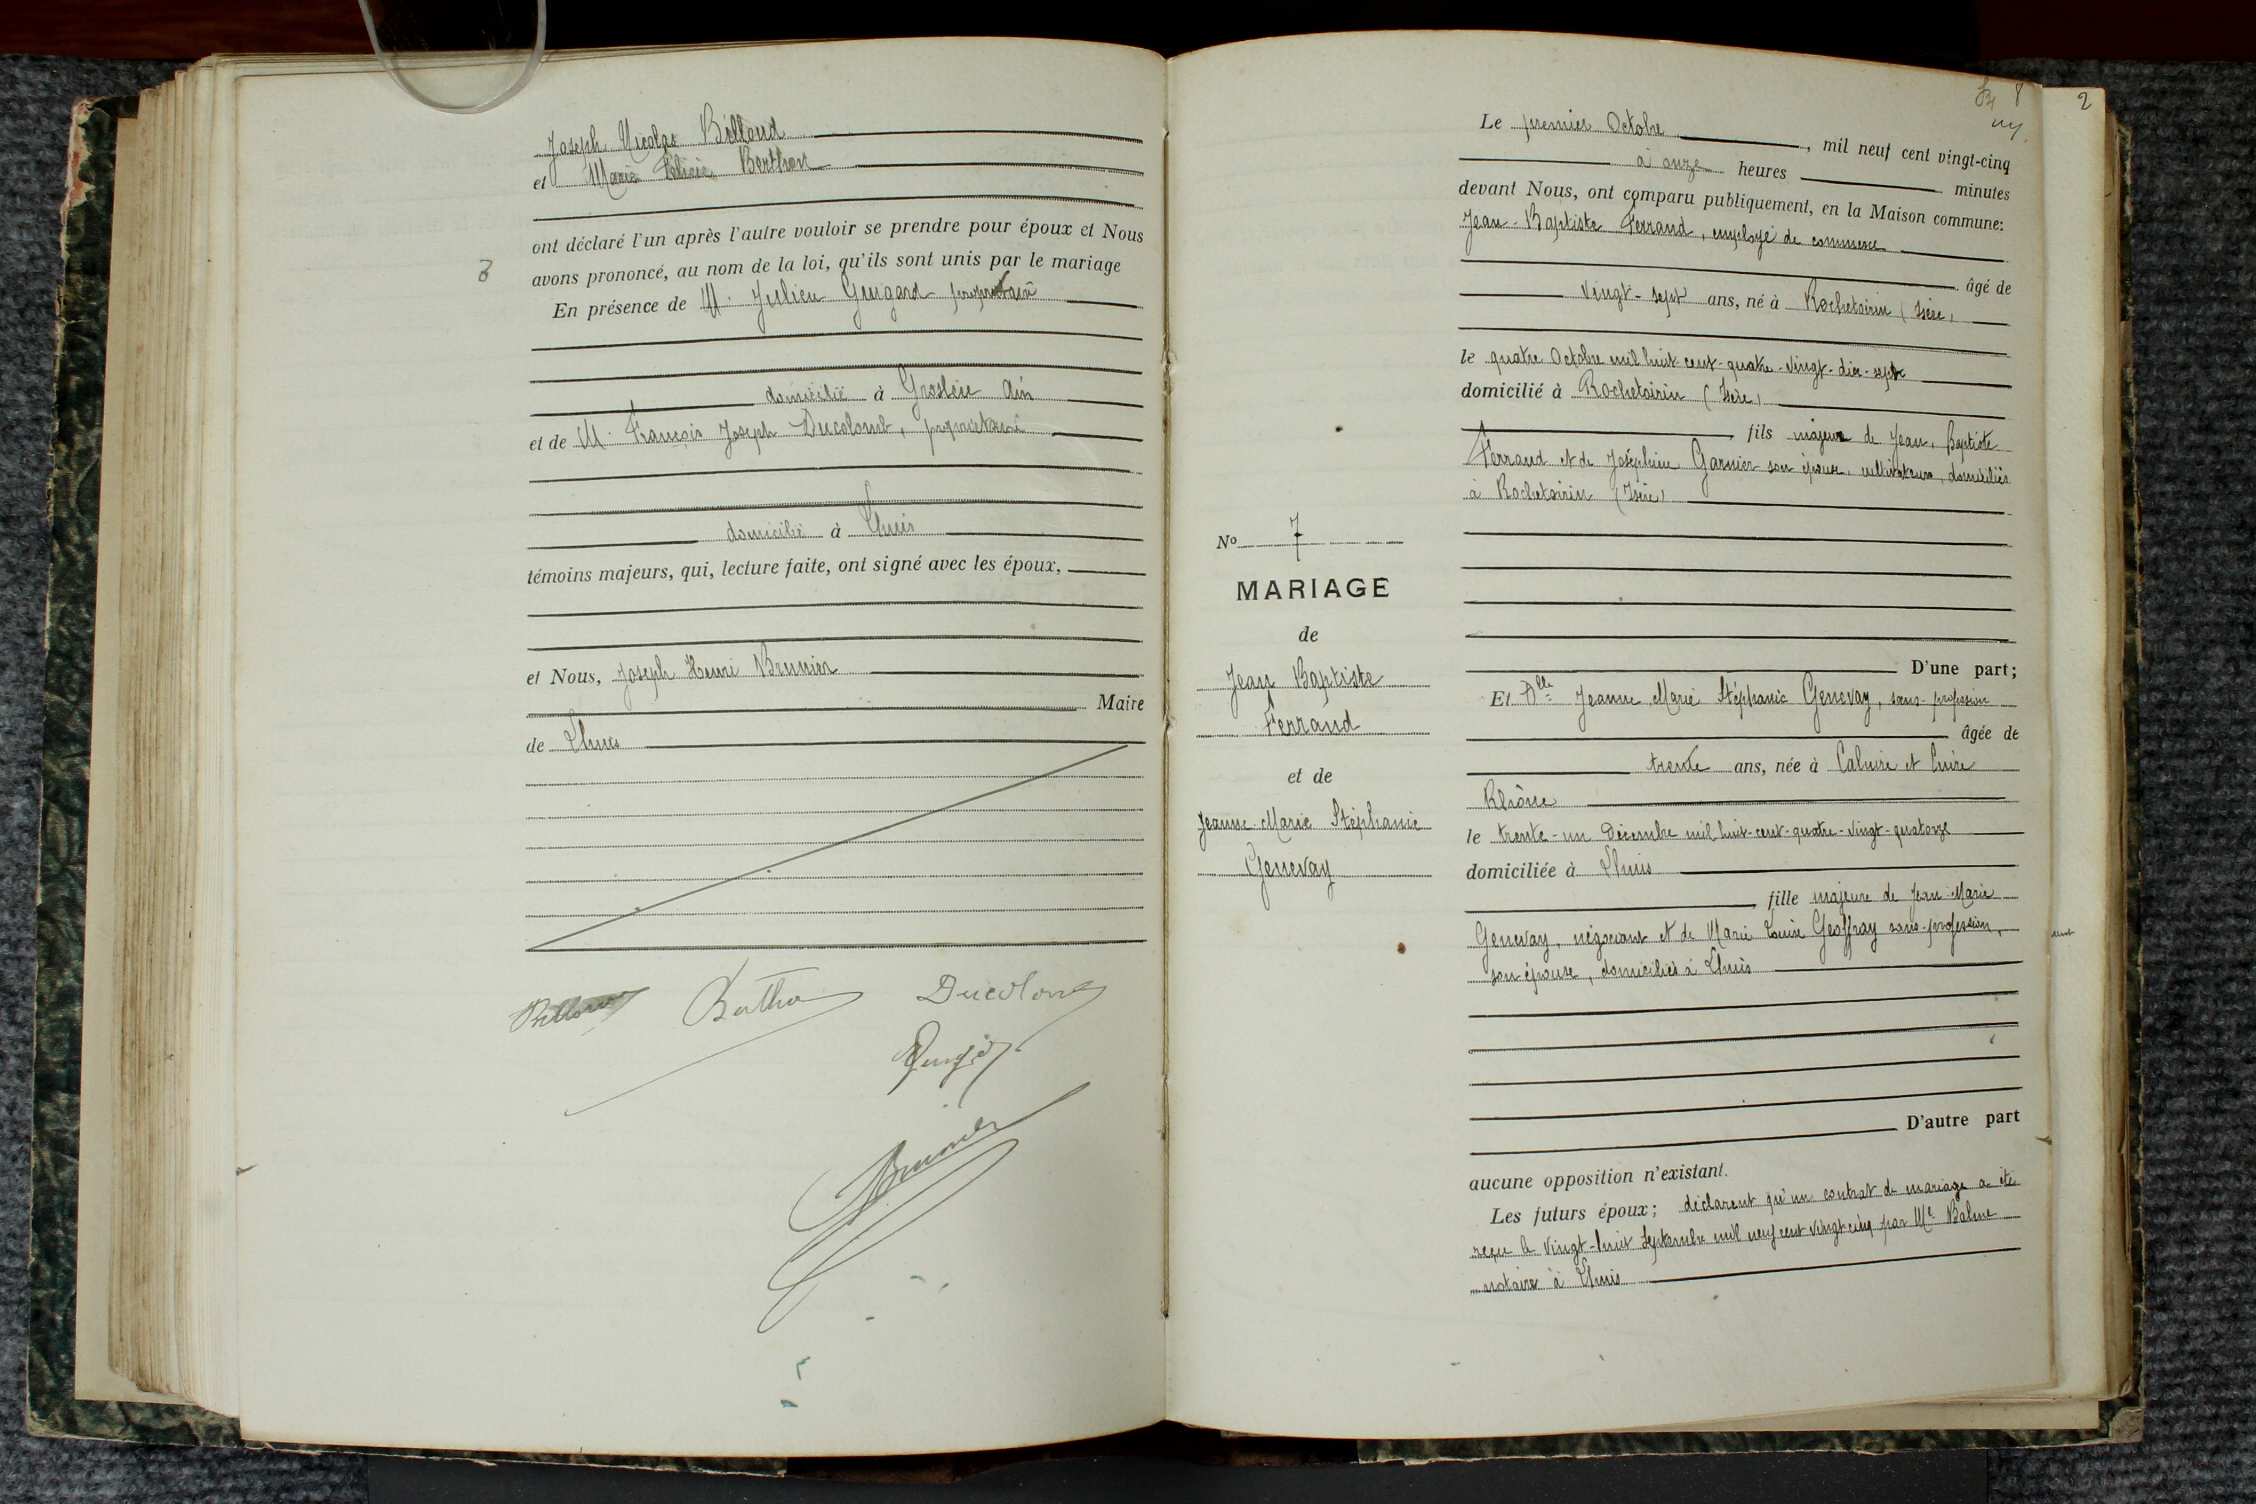 Joseph Nicolas Billoud
et Marie Félicie Berthon
ont déclaré l'un après l'autre vouloir se prendre pour époux et Nous
avons prononcé, au nom de la loi, qu'ils sont unis par le mariage
En présence de M. Julien Guigard propriétaire
domicilié à Groslée Ain
et de M. François Joseph Ducolomb, propriétaire
domicilié à Lhuis
témoins majeurs, qui, lecture faite, ont signé avec les époux,
et Nous, Joseph Henri Brunier
Maire
de Lhuis
Billoud Berthon Ducolomb
Brunier
8
2
Le premier Octobre, mil neuf cent vingt-cinq
à onze heures minutes
devant Nous, ont comparu publiquement, en la Maison commune:
Jean-Baptiste Ferrand, employé de commerce
âgé de
vingt-sept ans, né à Rochetoirin (Isère)
le quatre Octobre mil huit cent-quatre-vingt-dix-sept
domicilié à Rochetoirin (Isère)
fils majeur de Jean, Baptiste
Ferrand et de Joséphine Garnier son épouse, cultivateurs, domiciliés
à Rochetoirin (Isère)
No 7
MARIAGE
de
Jean Baptiste
Ferrand
et de
Jeanne Marie Stéphanie
Genevay
D'une part;
Et Dlle Jeanne Marie Stéphanie Genevay, sans profession
âgée de
trente ans, née à Caluire et Cuire
Rhône
le trente-un Décembre mil huit-cent-quatre-vingt-quatorze
domiciliée à Lhuis
fille majeure de Jean-Marie
Genevay, négociant et de Marie Louise Geoffray sans-profession,
son épouse, domiciliés à Lhuis
D'autre part
aucune opposition n'existant.
Les futurs époux; déclarent qu'un contrat de mariage a été
reçu le vingt-huit Septembre mil neuf cent vingt cinq par Me Balme
notaire à Lhuis